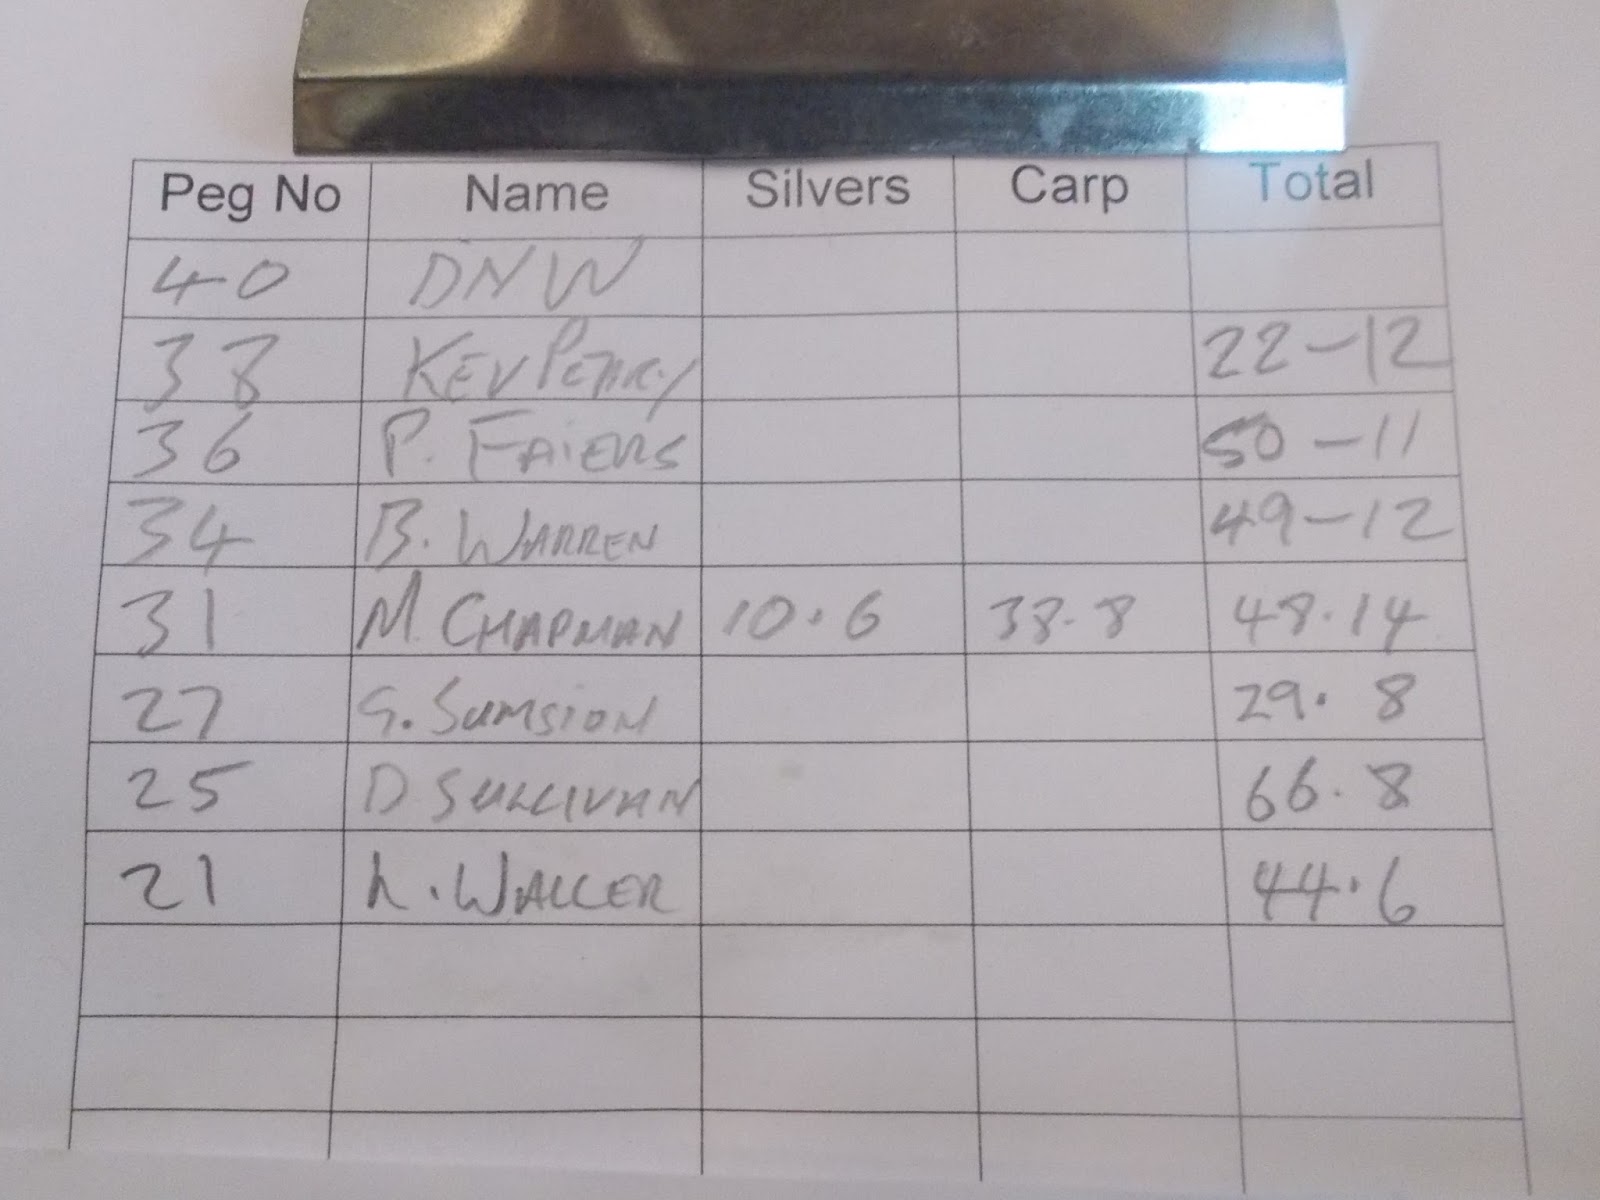 Peg No Name Silvers Carp Total
40 DNW
38 KEV 22-12
36 P. FAIERS 50-11
34 B. WARREN 49-12
31 M. CHAPMAN 10.6 38.8 48.14
27 G. SUMSION 29.8
25 D SULLIVAN 66.8
21 L. WALLER 44.6